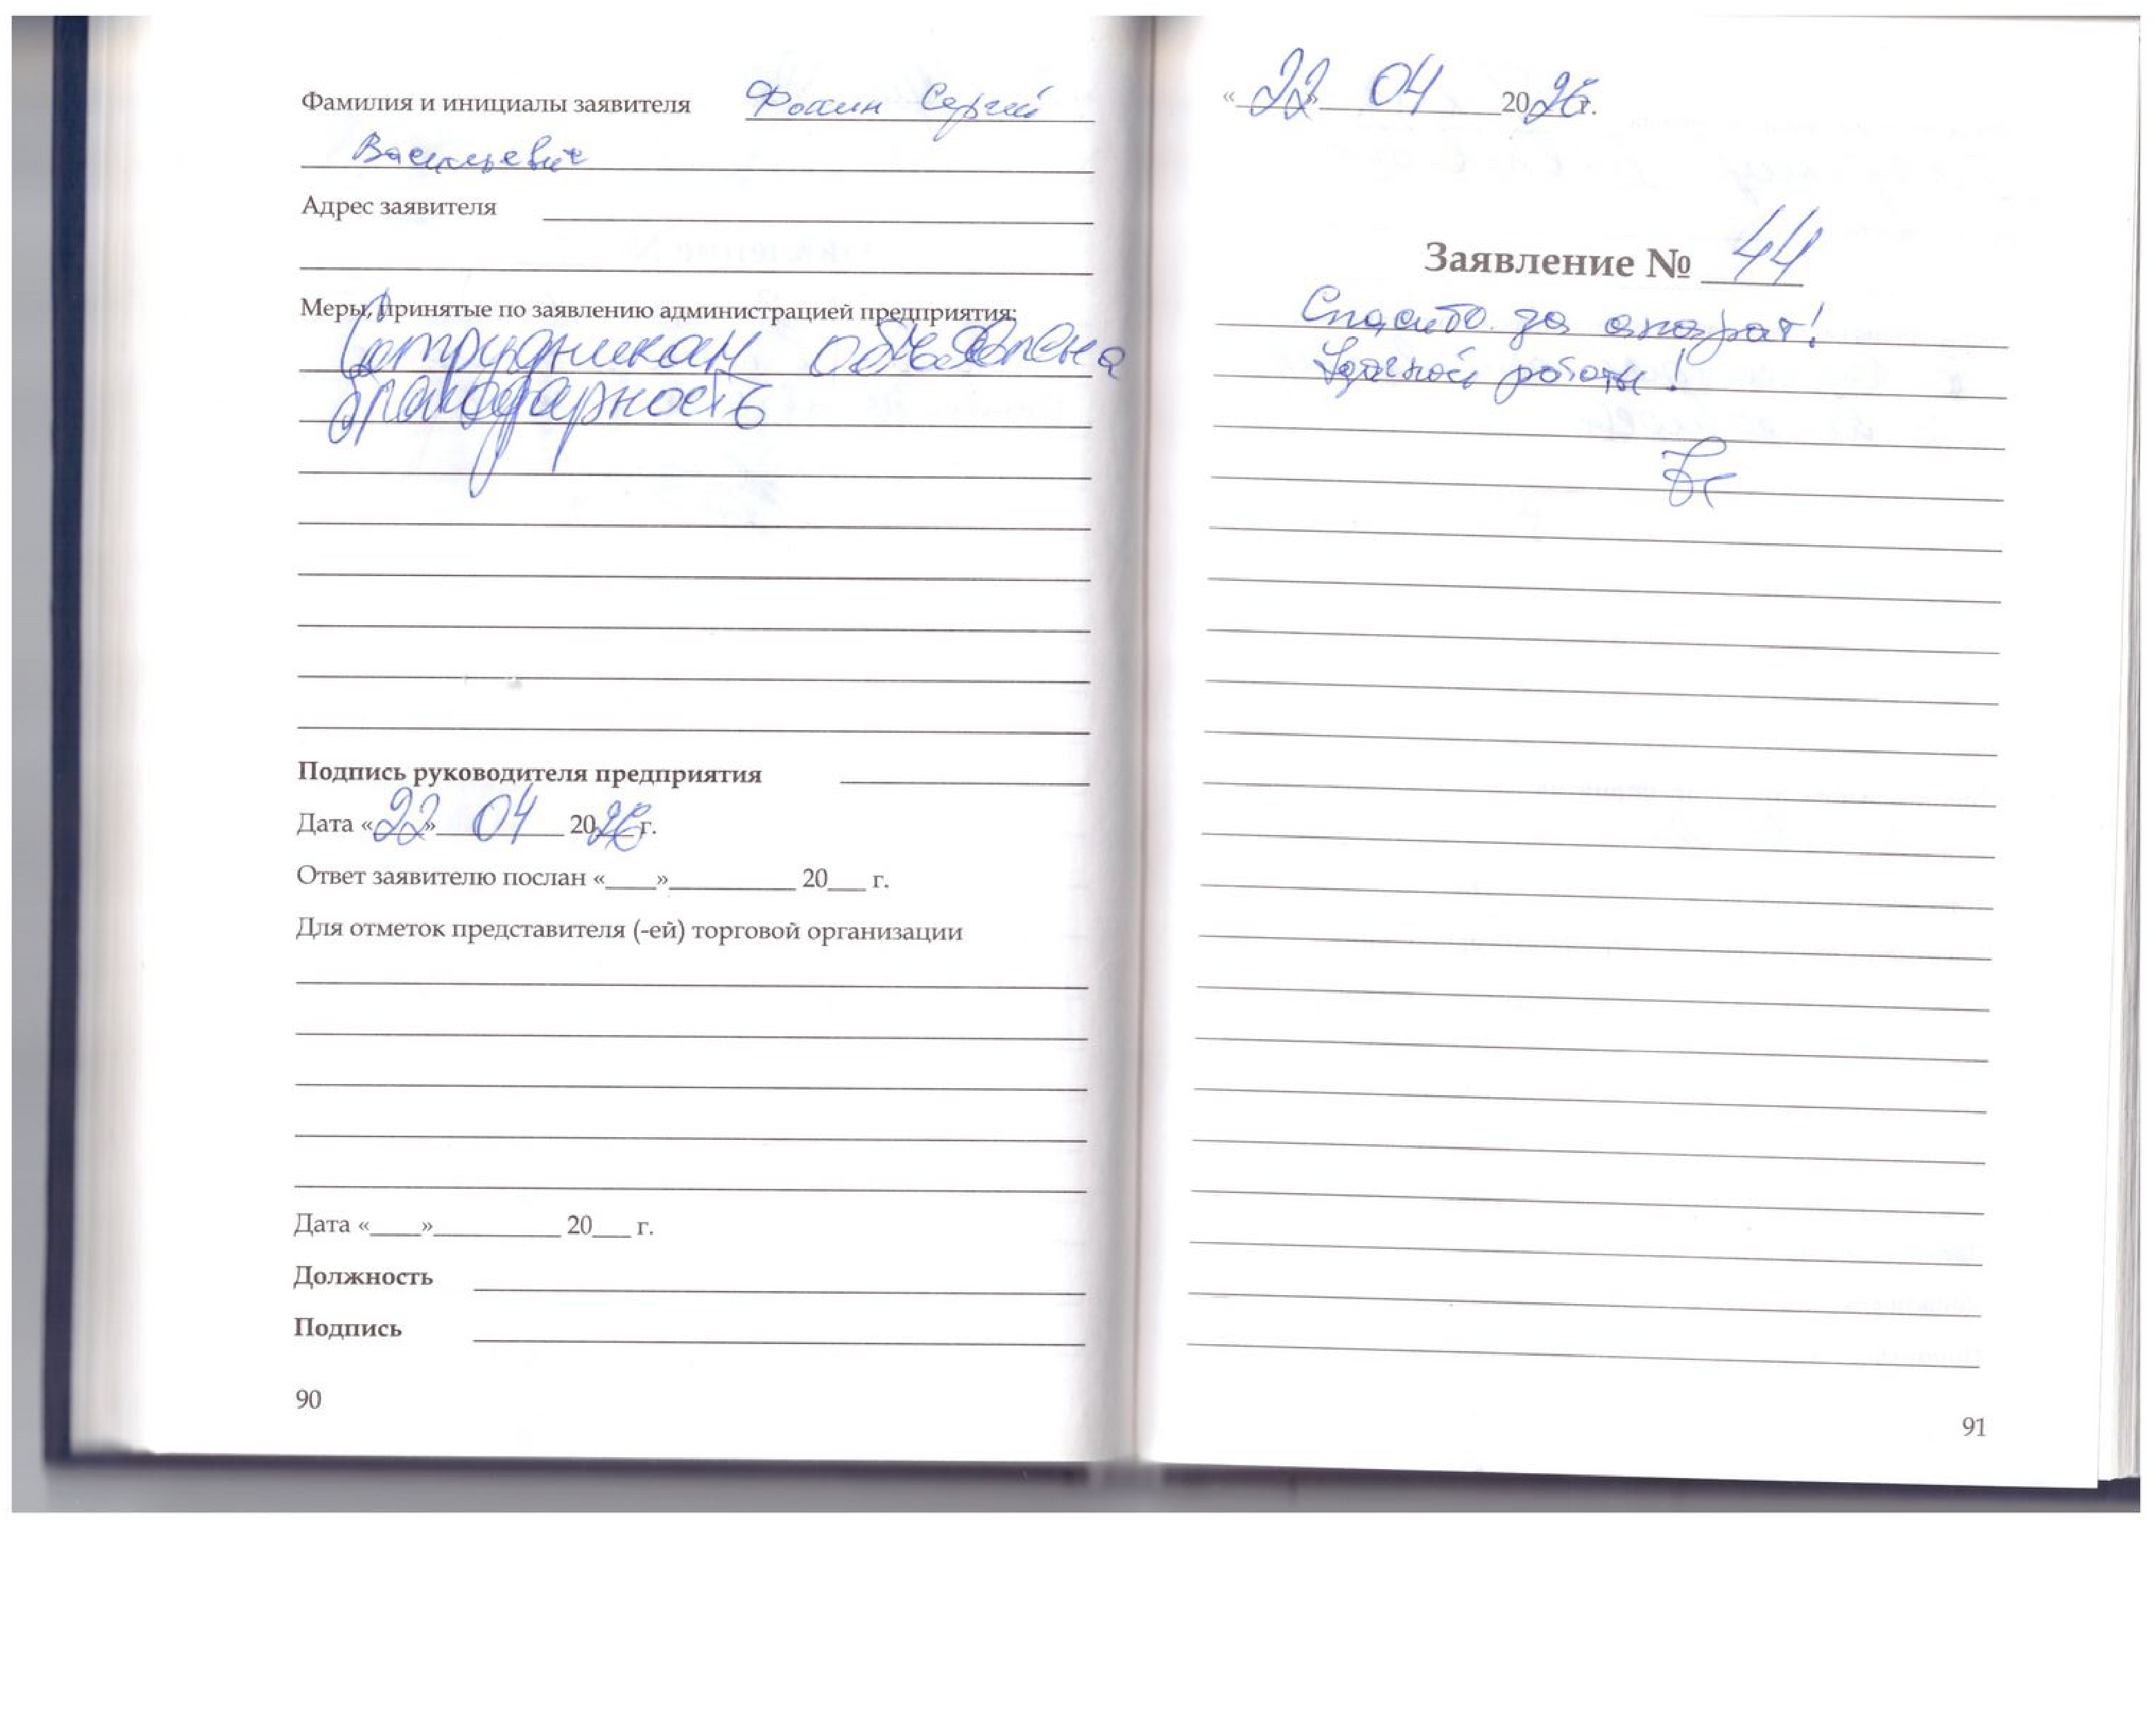 Фамилия и инициалы заявителя Фомин Сергей
Васильевич
Адрес заявителя
Меры, принятые по заявлению администрацией предприятия:
Сотрудникам объявлена
благодарность
Подпись руководителя предприятия
Дата «22» 04 2026 г.
Ответ заявителю послан «____»__________ 20___ г.
Для отметок представителя (-ей) торговой организации
Дата «____»__________ 20___ г.
Должность
Подпись
90
«22» 04 2026 г.
Заявление № 44
Спасибо за аппарат!
Удачной работы!
91